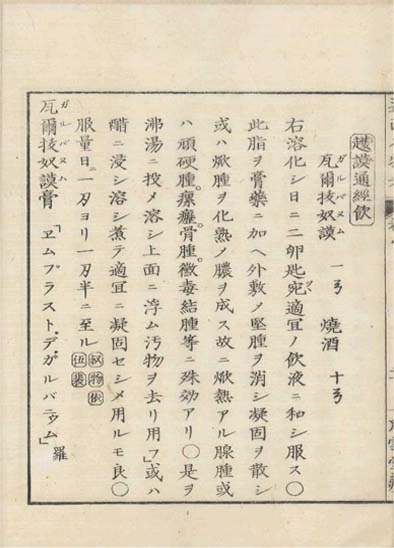 越謨通經飲
瓦爾抜奴謨 一弓 燒酒 十弓
ガルバヌム
右溶化シ日ニ二卵匙宛適冝ノ飲液ニ和シ服ス〇
此脂ヲ膏藥ニ加ヘ外敷メ堅腫ヲ消シ凝固ヲ散シ
或ハ焮腫ヲ化熟メ膿ヲ成ス故ニ焮熱アル腺腫或
ハ頑硬腫。瘰癧。骨腫。黴毒結腫等ニ殊効アリ〇是ヲ
沸湯ニ投メ溶シ上面ニ浮ム汚物ヲ去リ用フ」或ハ
醋ニ浸シ溶シ煮テ適冝ニ凝固セシメ用ルモ良〇
服量日ニ一刀ヨリ一刀半ニ至ル 叔物依 伍裴
瓦爾抜奴謨膏 「ヱムプラスト。デ。ガルバニウム」 羅
ガルバヌム